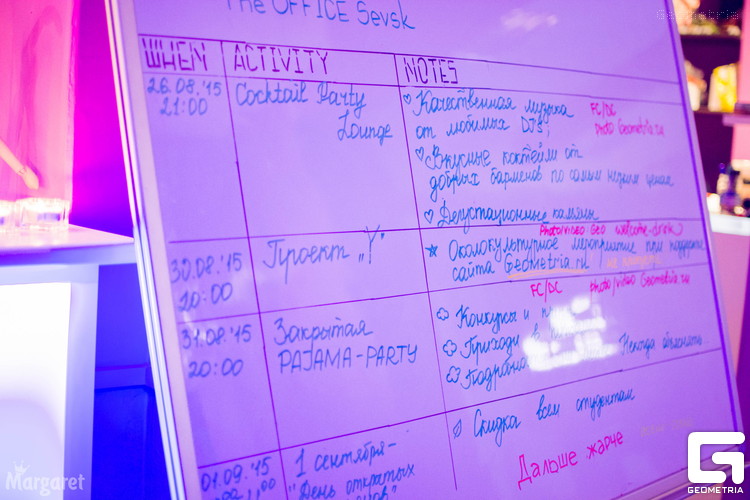 The OFFICE Sevsk
Geometria
WHEN ACTIVITY NOTES
26.08.'15
21:00
Cocktail Party
Lounge
Качественная музыка
от любимых DJ's;
FC/DC
Photo Geometria.ru
Вкусные коктейли от
добрых барменов по самым низким ценам
Дегустационные
30.08.'15
Проект „Y"
Photo/video Geo welcome-drink
Околокультурное мероприятие при поддержке
сайта Geometria.ru
31.08.'15
20:00
Закрытая
PAJAMA-PARTY
FC/DC
Photo/video Geometria.ru
Конкурсы и
Приходи в
Некогда объяснять
01.09.'15
1 сентября-
"День открытых
Скидка всем студентам
Дальше жарче
Margaret
GEOMETRIA